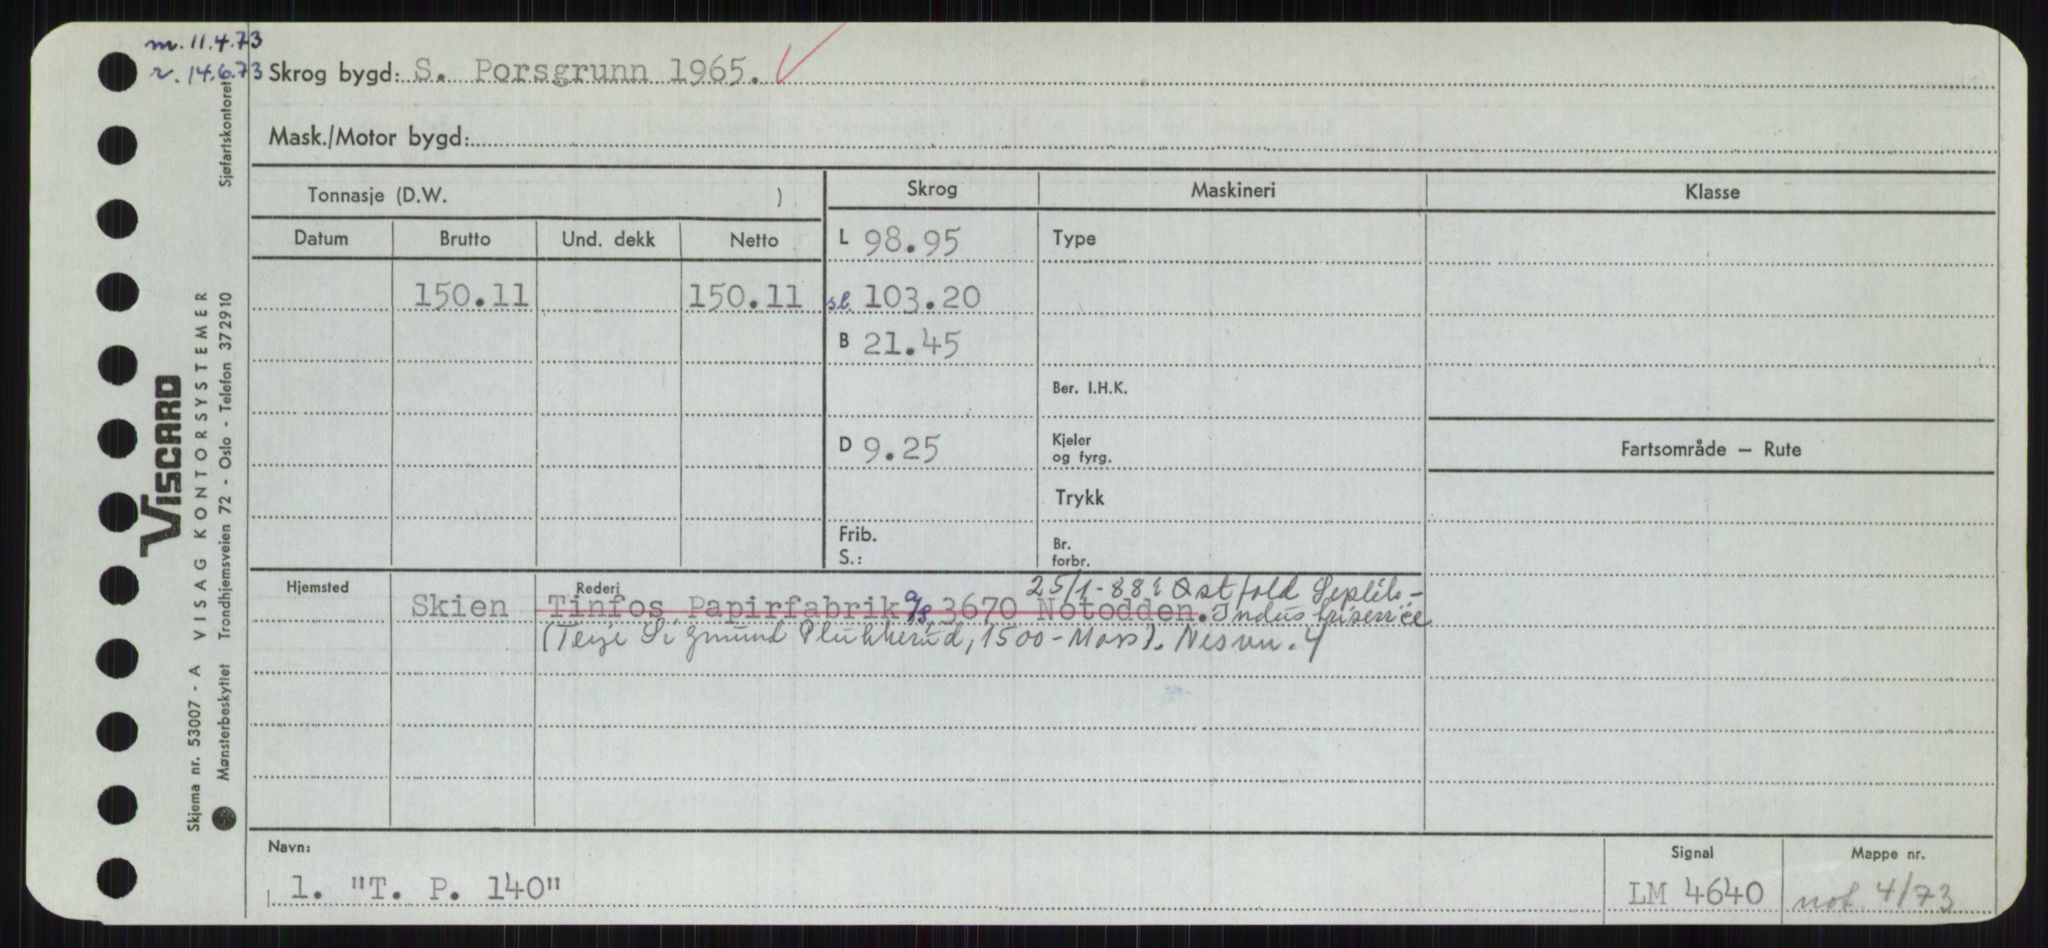 m. 11.4.73
r. 14.6.73
Skrog bygd: S. Porsgrunn 1965.
Mask./Motor bygd:
Tonnasje (D.W. )
Skrog
Maskineri
Klasse
Datum
Brutto
Und. dekk
Netto
L 98.95
Type
150.11
150.11
sl. 103.20
B 21.45
Ber. I.H.K.
D 9.25
Kjeler
og fyrg.
Fartsområde — Rute
Trykk
Frib.
S.:
Br.
forbr.
Hjemsted
Rederi
25/1-88: Østfold
Skien
Tinfos Papirfabrik A/S, 3670 Notodden. Industriservice
(Terje Sigmund Plukkerud, 1500-Moss). Nesvn. 4
Navn:
1. "T. P. 140"
Signal
LM 4640
Mappe nr.
not. 4/73
Skjema nr. 53007 - A VISAG KONTORSYSTEMER
VISCARD
Mønsterbeskyttet Trondhjemsveien 72 - Oslo - Telefon 372910
Sjøfartskontoret